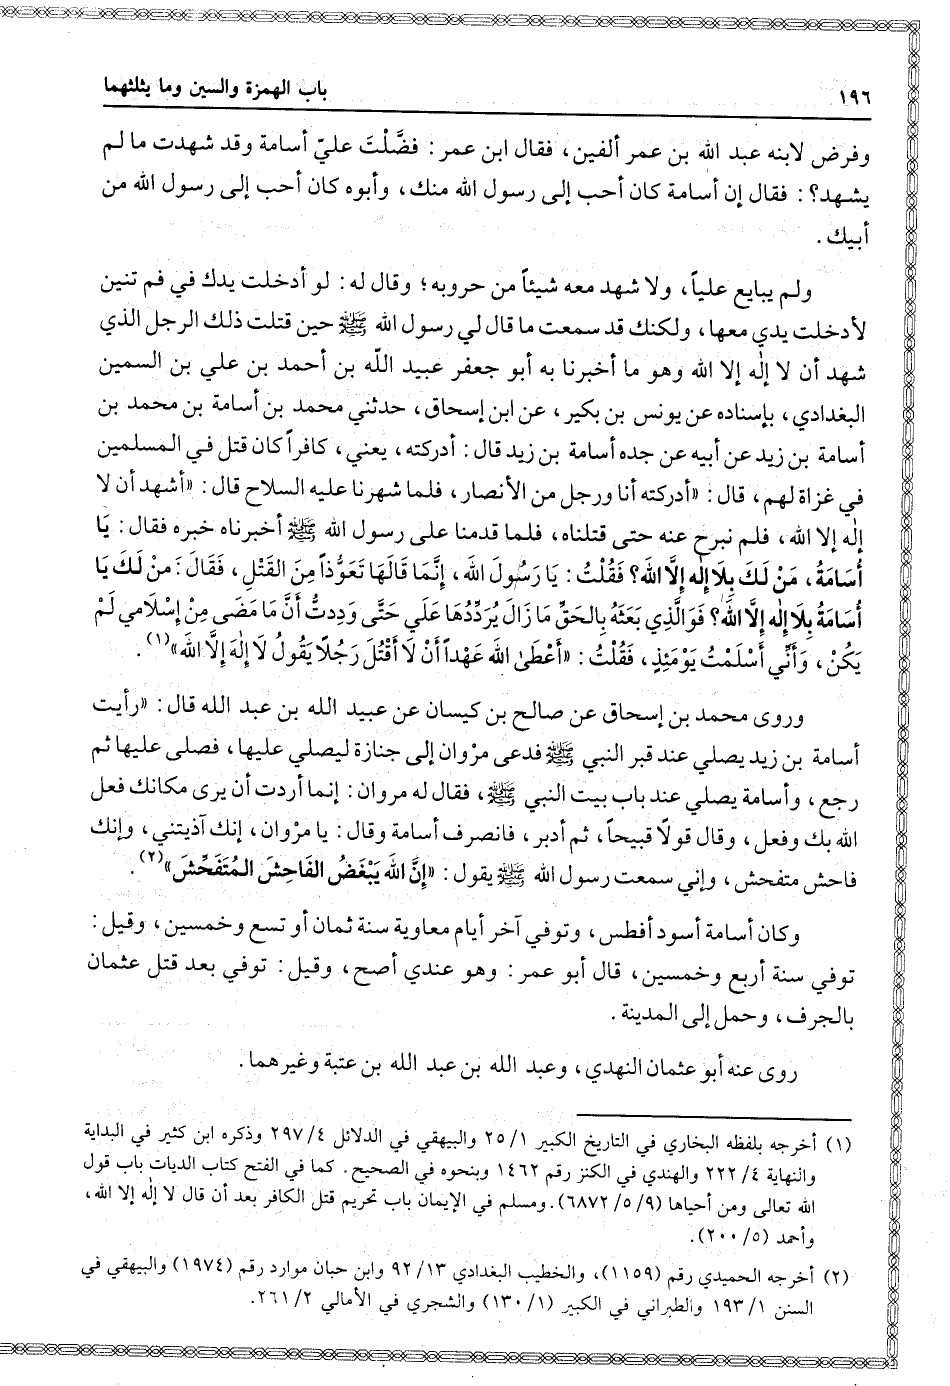 ١٩٦ باب الهمزة والسين وما يثلثهما
وفرض لابنه عبد الله بن عمر ألفين، فقال ابن عمر: فضَّلْتَ عليّ أسامة وقد شهدت ما لم
يشهد؟: فقال إن أسامة كان أحب إلى رسول الله منك، وأبوه كان أحب إلى رسول الله من
أبيك.
ولم يبايع علياً، ولا شهد معه شيئاً من حروبه؛ وقال له: لو أدخلت يدك في فم تنين
لأدخلت يدي معها، ولكنك قد سمعت ما قال لي رسول الله ﷺ حين قتلت ذلك الرجل الذي
شهد أن لا إلٰه إلا الله وهو ما أخبرنا به أبو جعفر عبيد اللّه بن أحمد بن علي بن السمين
البغدادي، بإسناده عن يونس بن بكير، عن ابن إسحاق، حدثني محمد بن أسامة بن محمد بن
أسامة بن زيد عن أبيه عن جده أسامة بن زيد قال: أدركته، يعني، كافراً كان قتل في المسلمين
في غزاة لهم، قال: «أدركته أنا ورجل من الأنصار، فلما شهرنا عليه السلاح قال: «أشهد أن لا
إلٰه إلا الله، فلم نبرح عنه حتى قتلناه، فلما قدمنا على رسول الله ﷺ أخبرناه خبره فقال: يَا
أُسَامَةُ، مَنْ لَكَ بِلاَ إِلٰه إِلاَّ الله؟ فَقُلْتُ: يَا رَسُولَ الله، إِنَّمَا قَالَهَا تَعَوُّذاً مِنَ القَتْلِ، فَقَالَ: مَنْ لَكَ يَا
أُسَامَةُ بِلاَ إِلٰه إِلاَّ الله؟ فَوَالَّذِي بَعَثَهُ بِالحَقِّ مَا زَالَ يُرَدِّدُهَا عَلَي حَتَّى وَدِدتُ أَنَّ مَا مَضَى مِنْ إِسْلاَمِي لَمْ
يَكُنْ، وَأَنِّي أَسْلَمْتُ يَوْمَئِذٍ، فَقُلْتُ: «أَعْطَىٰ الله عَهْداً أَنْ لاَ أَقْتُلَ رَجُلاً يَقُولُ لاَ إِلٰهَ إِلاَّ الله»(١).
وروى محمد بن إسحاق عن صالح بن كيسان عن عبيد الله بن عبد الله قال: «رأيت
أسامة بن زيد يصلي عند قبر النبي ﷺ فدعى مرْوان إلى جنازة ليصلي عليها، فصلى عليها ثم
رجع، وأسامة يصلي عند باب بيت النبي ﷺ، فقال له مروان: إنما أردت أن يرى مكانك فعل
الله بك وفعل، وقال قولاً قبيحاً، ثم أدبر، فانصرف أسامة وقال: يا مرْوان، إنك آذيتني، وإنك
فاحش متفحش، وإني سمعت رسول الله ﷺ يقول: «إِنَّ الله يَبْغَضُ الفَاحِشَ المُتَفَحِّشَ»(٢).
وكان أسامة أسود أفطس، وتوفي آخر أيام معاوية سنة ثمان أو تسع وخمسين، وقيل:
توفي سنة أربع وخمسين، قال أبو عمر: وهو عندي أصح، وقيل: توفي بعد قتل عثمان
بالجرف، وحمل إلى المدينة.
روى عنه أبو عثمان النهدي، وعبد الله بن عبد الله بن عتبة وغيرهما.
(١) أخرجه بلفظه البخاري في التاريخ الكبير ٢٥/١ والبيهقي في الدلائل ٢٩٧/٤ وذكره ابن كثير في البداية
والنهاية ٢٢٢/٤ والهندي في الكنز رقم ١٤٦٢ وبنحوه في الصحيح. كما في الفتح كتاب الديات باب قول
الله تعالى ومن أحياها (٦٨٧٢/٥/٩). ومسلم في الإيمان باب تحريم قتل الكافر بعد أن قال لا إلٰه إلا الله،
وأحمد (٢٠٠/٥).
(٢) أخرجه الحميدي رقم (١١٥٩)، والخطيب البغدادي ٩٢/١٣ وابن حبان موارد رقم (١٩٧٤) والبيهقي في
السنن ١٩٣/١ والطبراني في الكبير (١٣٠/١) والشجري في الأمالي ٢٦١/٢.